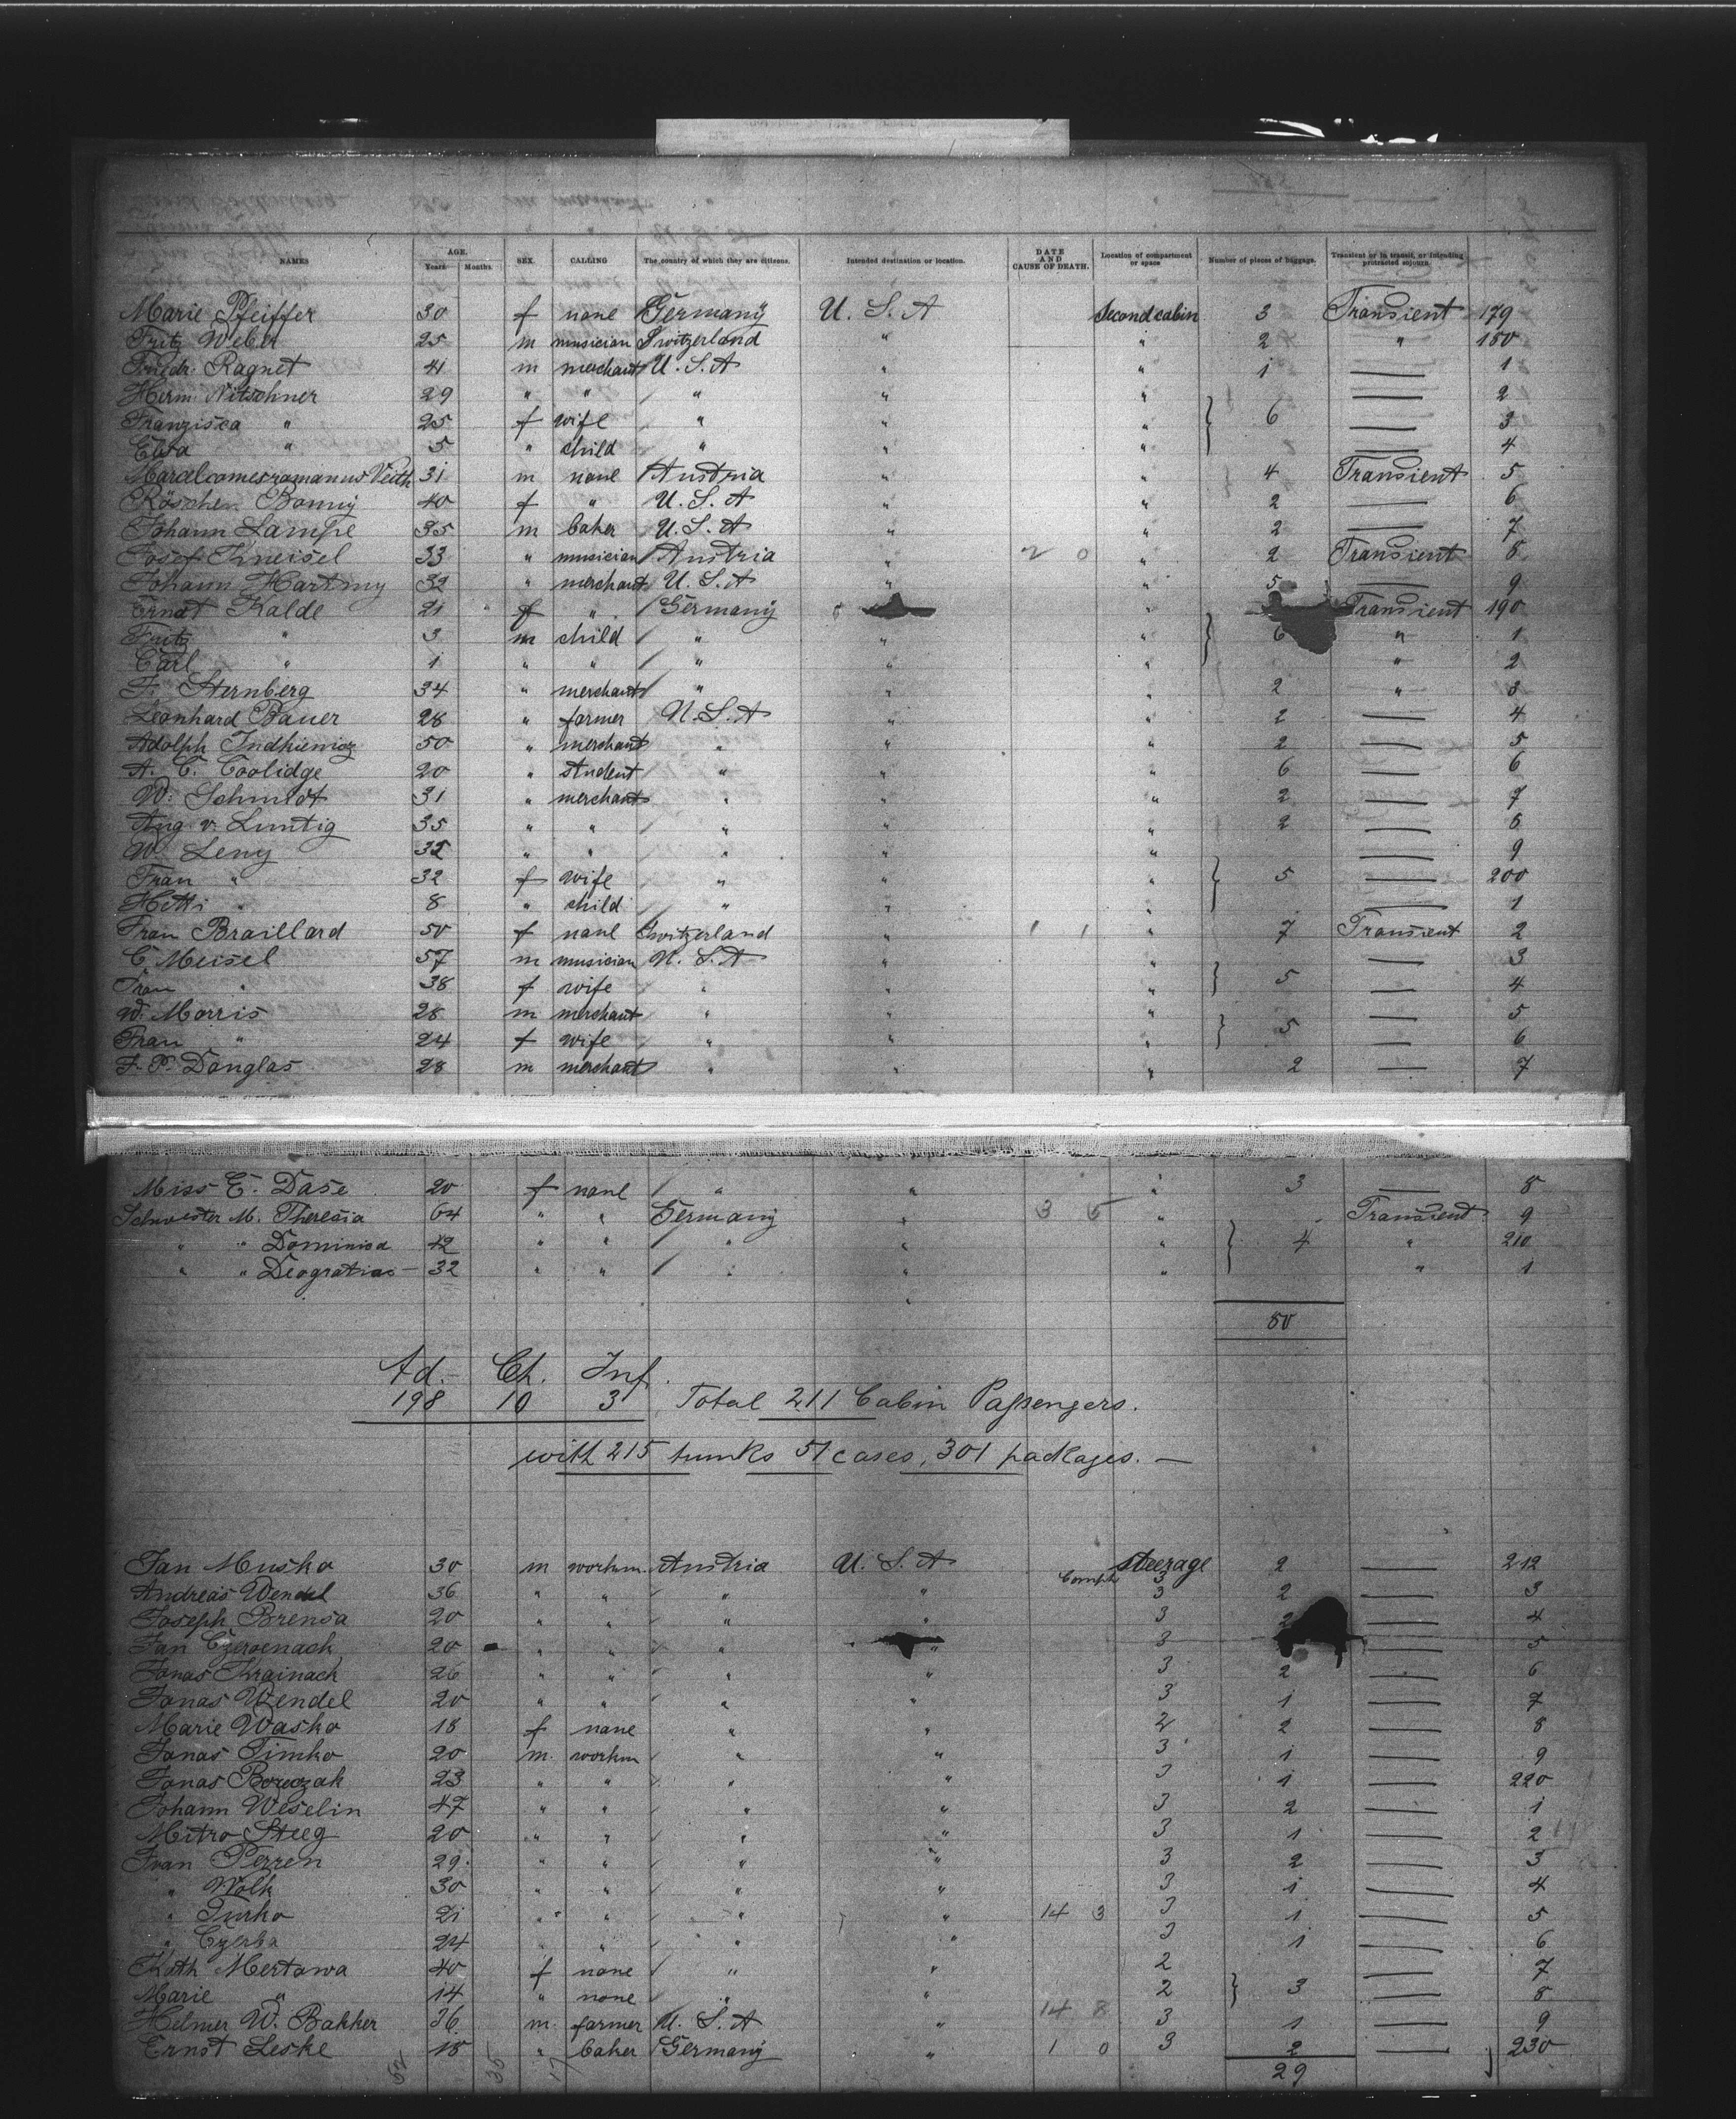 NAMES AGE. Years Months. SEX. CALLING The country of which they are citizens. Intended destination or location. DATE AND CAUSE OF DEATH. Location of compartment or space Number of pieces of baggage. Transient or in transit, or intending protracted sojourn.
Marie Pfeiffer 30 f none Germany U. S. A Second cabin 3 Transient 179
Fritz Weber 25 m musician Switzerland " " 2 " 180
Friedr. Ragnet 41 m merchant U. S. A " " 1 — 1
Herm. Nitschner 29 " " " " " — 2
Franzisca " 25 f wife " " " 6 — 3
Elsa " 5 " child " " " — 4
Veith 31 m none Austria " " 4 Transient 5
Röschen Bonny 40 f " U. S. A " " 2 — 6
Johann Lampe 35 m baker U. S. A " " 2 — 7
Josef Kneisel 33 " musician Austria " 2 0 " 2 Transient 8
Johann Hartmy 32 " merchant U. S. A " " 5 — 9
Ernst Kalde 21 f " Germany " Transient 190
Fritz " 3 m child " " " 6 " 1
Carl " 1 " " " " " " 2
F. Sternberg 34 " merchant " " " 2 " 3
Leonhard Bauer 28 " farmer U. S. A " " 2 — 4
Adolph 50 " merchant " " " 2 — 5
A. C. Coolidge 20 " student " " " 6 — 6
W. Schmidt 31 " merchant " " " 2 — 7
Aug. v. Luntig 35 " " " " " 2 — 8
W. Leny 35 " " " " " — 9
Frau " 32 f wife " " " 5 — 200
Hetti " 8 " child " " " — 1
Frau Braillard 50 f none Switzerland " 1 1 " 7 Transient 2
C Meisel 57 m musician U. S. A " " — 3
Frau " 38 f wife " " " 5 — 4
W. Morris 28 m merchant " " " — 5
Frau " 24 f wife " " " 5 — 6
F. P. Douglas 28 m merchant " " " 2 — 7
Miss E. Dase 20 f none " " " 3 — 8
Schwester M. Theresia 64 " " Germany " 3 5 " Transient 9
" " Dominica 42 " " " " " 4 " 210
" " Deogratias 32 " " " " " " 1
"
80
Ad. Ch. Inf.
198 10 3 Total 211 Cabin Passengers.
with 215 trunks 51 cases, 301 packages. —
Jan Musko 30 m workm. Austria U. S. A steerage 2 — 212
Andreas Wendel 36 " " " " Comph 3 2 — 3
Joseph Brensa 20 " " " " 3 2 — 4
Jan 20 " " " " 3 — 5
Jonas Krainach 26 " " " " 3 2 — 6
Jonas Wendel 20 " " " " 3 1 — 7
Marie Wasko 18 f none " " 2 2 — 8
Jonas Timko 20 m. workm " " 3 1 — 9
Jonas 23 " " " " 3 1 — 220
Johann Weselin 47 " " " " 3 2 — 1
Mitro Steeg 20 " " " " 3 1 — 2
Ivan Perren 29 " " " " 3 2 — 3
" Wolk 30 " " " " 3 1 — 4
" Turko 21 " " " " 14 3 3 1 — 5
" Czerba 24 " " " " 3 1 — 6
Kath Mertawa 40 f none " " 2 — 7
Marie " 14 " none " " 2 3 — 8
Helmer W. Bakker 36 m. farmer U. S. A " 14 8 3 1 — 9
Ernst Leske 18 " baker Germany " 1 0 3 2 — 230
29